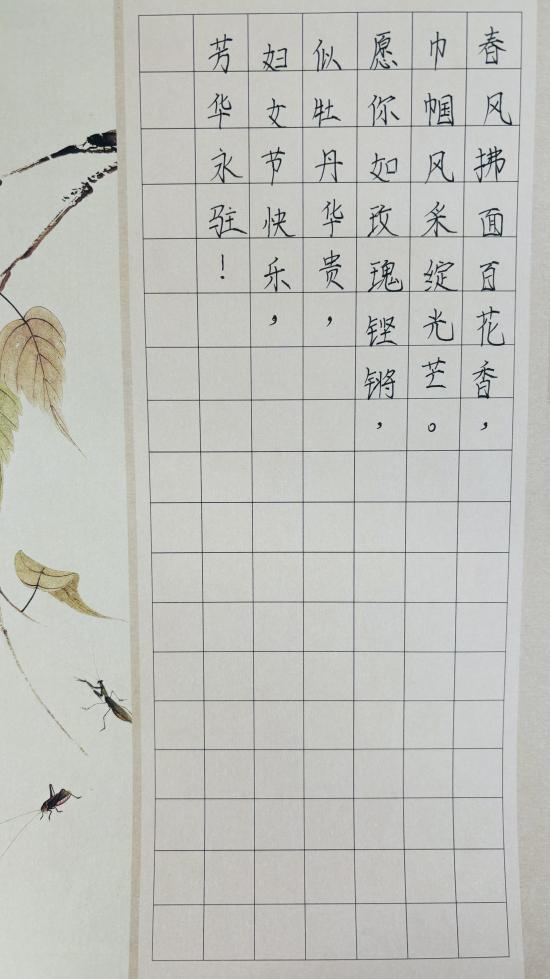 春风拂面百花香，
巾帼风采绽光芒。
愿你如玫瑰铿锵，
似牡丹华贵，
妇女节快乐，
芳华永驻！